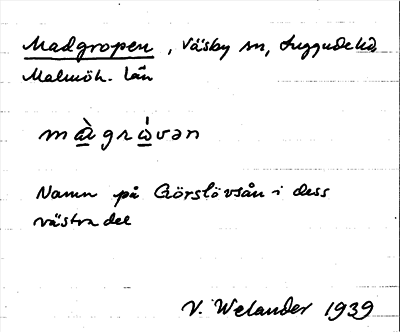 Madgropen, Väsby sn, Luggude hd
Malmöh. län
màgrⱥ́vən
Namn på Görslövsån i dess
västra del
V. Welander 1939